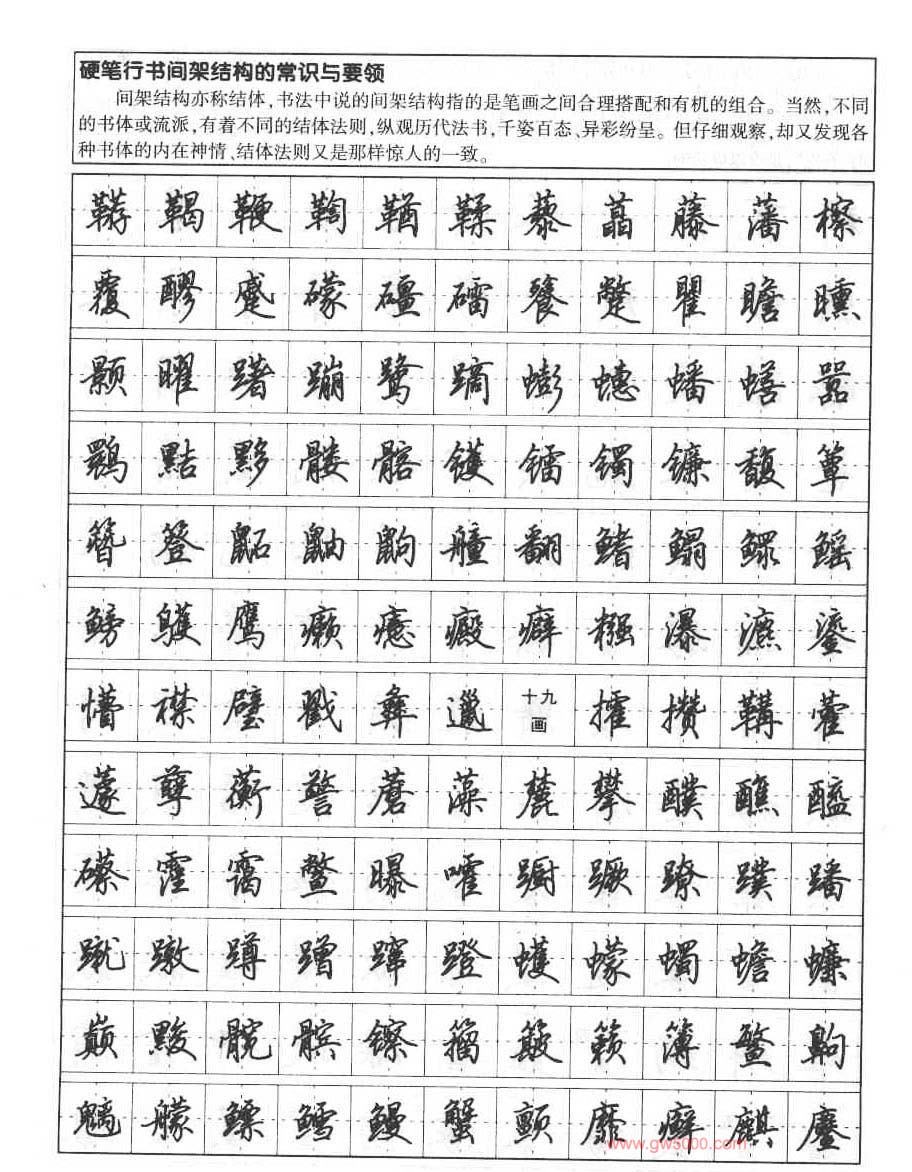 硬笔行书间架结构的常识与要领
间架结构亦称结体,书法中说的间架结构指的是笔画之间合理搭配和有机的组合。当然,不同
的书体或流派,有着不同的结体法则,纵观历代法书,千姿百态、异彩纷呈。但仔细观察,却又发现各
种书体的内在神情、结体法则又是那样惊人的一致。
鞯 鞨 鞭 鞫 鞧 鞣 藜 藠 藤 藩 檫
覆 醪 蹙 礞 礓 礌 餮 蹩 瞿 瞻 曛
颢 曜 躇 蹦 鹭 蹢 蟛 蟪 蟠 蟮 嚚
鹮 黠 黟 髅 髂 镬 镭 镯 镰 馥 簟
簪 簦 鼫 鼬 鼩 艟 翻 鳍 鳎 鳏 鳐
鳑 鹱 鹰 癞 癔 癜 癖 糨 瀑 瀌 鎏
懵 襟 璧 戳 彝 邋 十九画 攉 攒 鞲 藿
蘧 孽 蘅 警 蘑 藻 麓 攀 醭 醮 醯
礤 霪 霭 鳖 曝 嚯 蹰 蹶 蹽 蹼 蹯
蹴 蹾 蹲 蹭 蹿 蹬 蠖 蠓 蠋 蟾 蠊
巅 黢 髋 髌 镲 籀 簸 籁 簿 鳘 齁
魑 艨 鳔 鳕 鳗 蟹 颤 靡 癣 麒 鏖
www.gw5000.com